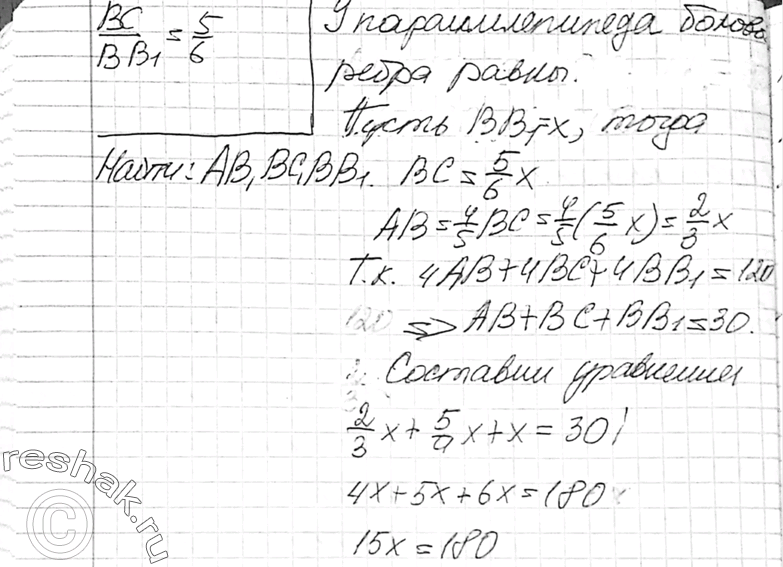 BC/BB₁ = 5/6
У параллелепипеда боков
ребра равны.
Пусть BB₁=x, тогда
Найти: AB, BC, BB₁. BC = 5/6 x
AB = 4/5 BC = 4/5 (5/6 x) = 2/3 x
Т.к. 4AB+4BC+4BB₁=120
120 => AB+BC+BB₁=30.
Составим уравнение
2/3 x + 5/9 x + x = 30/
4x+5x+6x=180
15x=180
reshak.ru